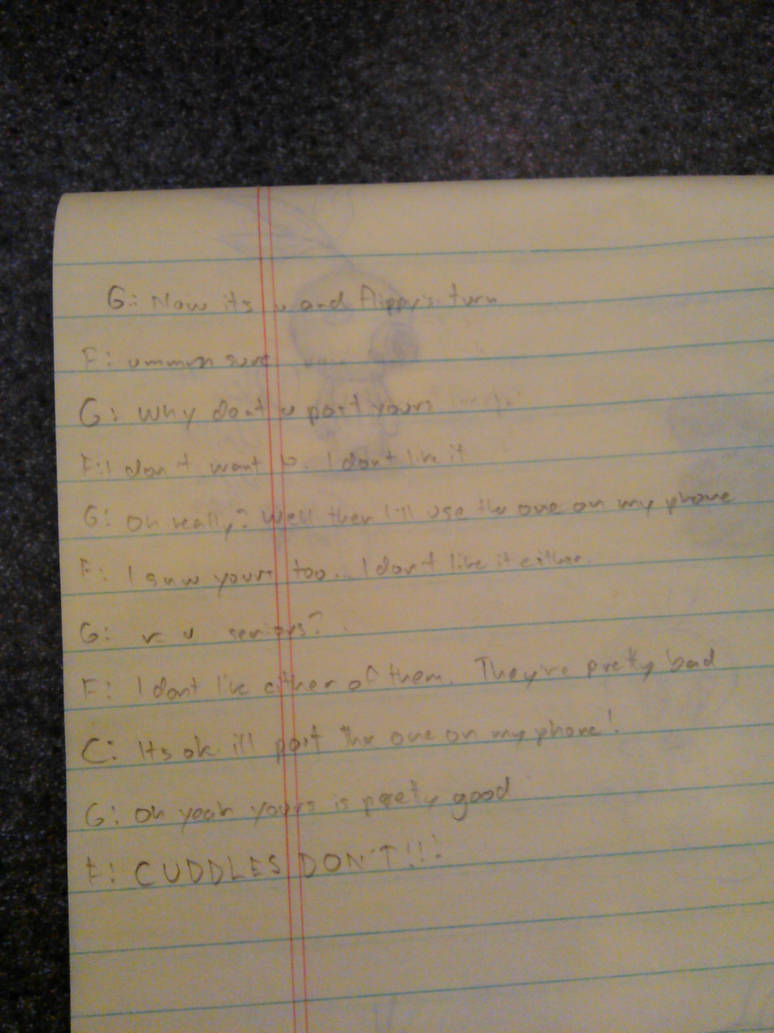 G: Now its u and flippy's turn
F: ummm sure
G: Why dont u post yours
F: I don't want to. I dont like it
G: Oh really? Well then I'll use the one on my phone
F: I saw yours too... I dont like it either.
G: r u serious?
F: I dont like either of them. They're pretty bad
C: Its ok ill post the one on my phone!
G: oh yeah yours is pretty good
F: CUDDLES DON'T!!!